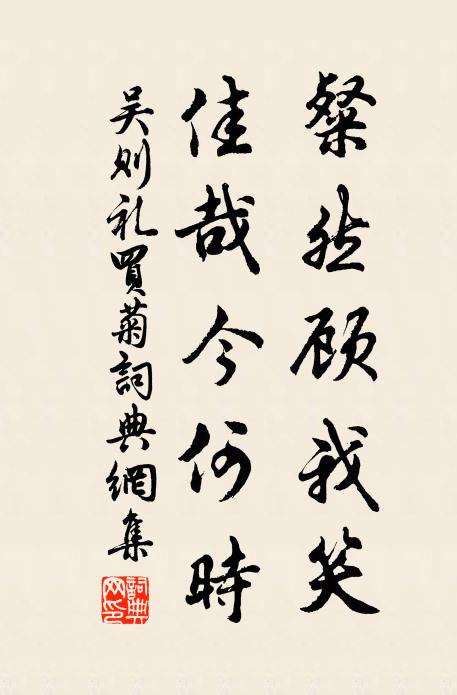 粲然顾我笑
佳哉今何時
吴则礼買菊詞典網集
詞典網印